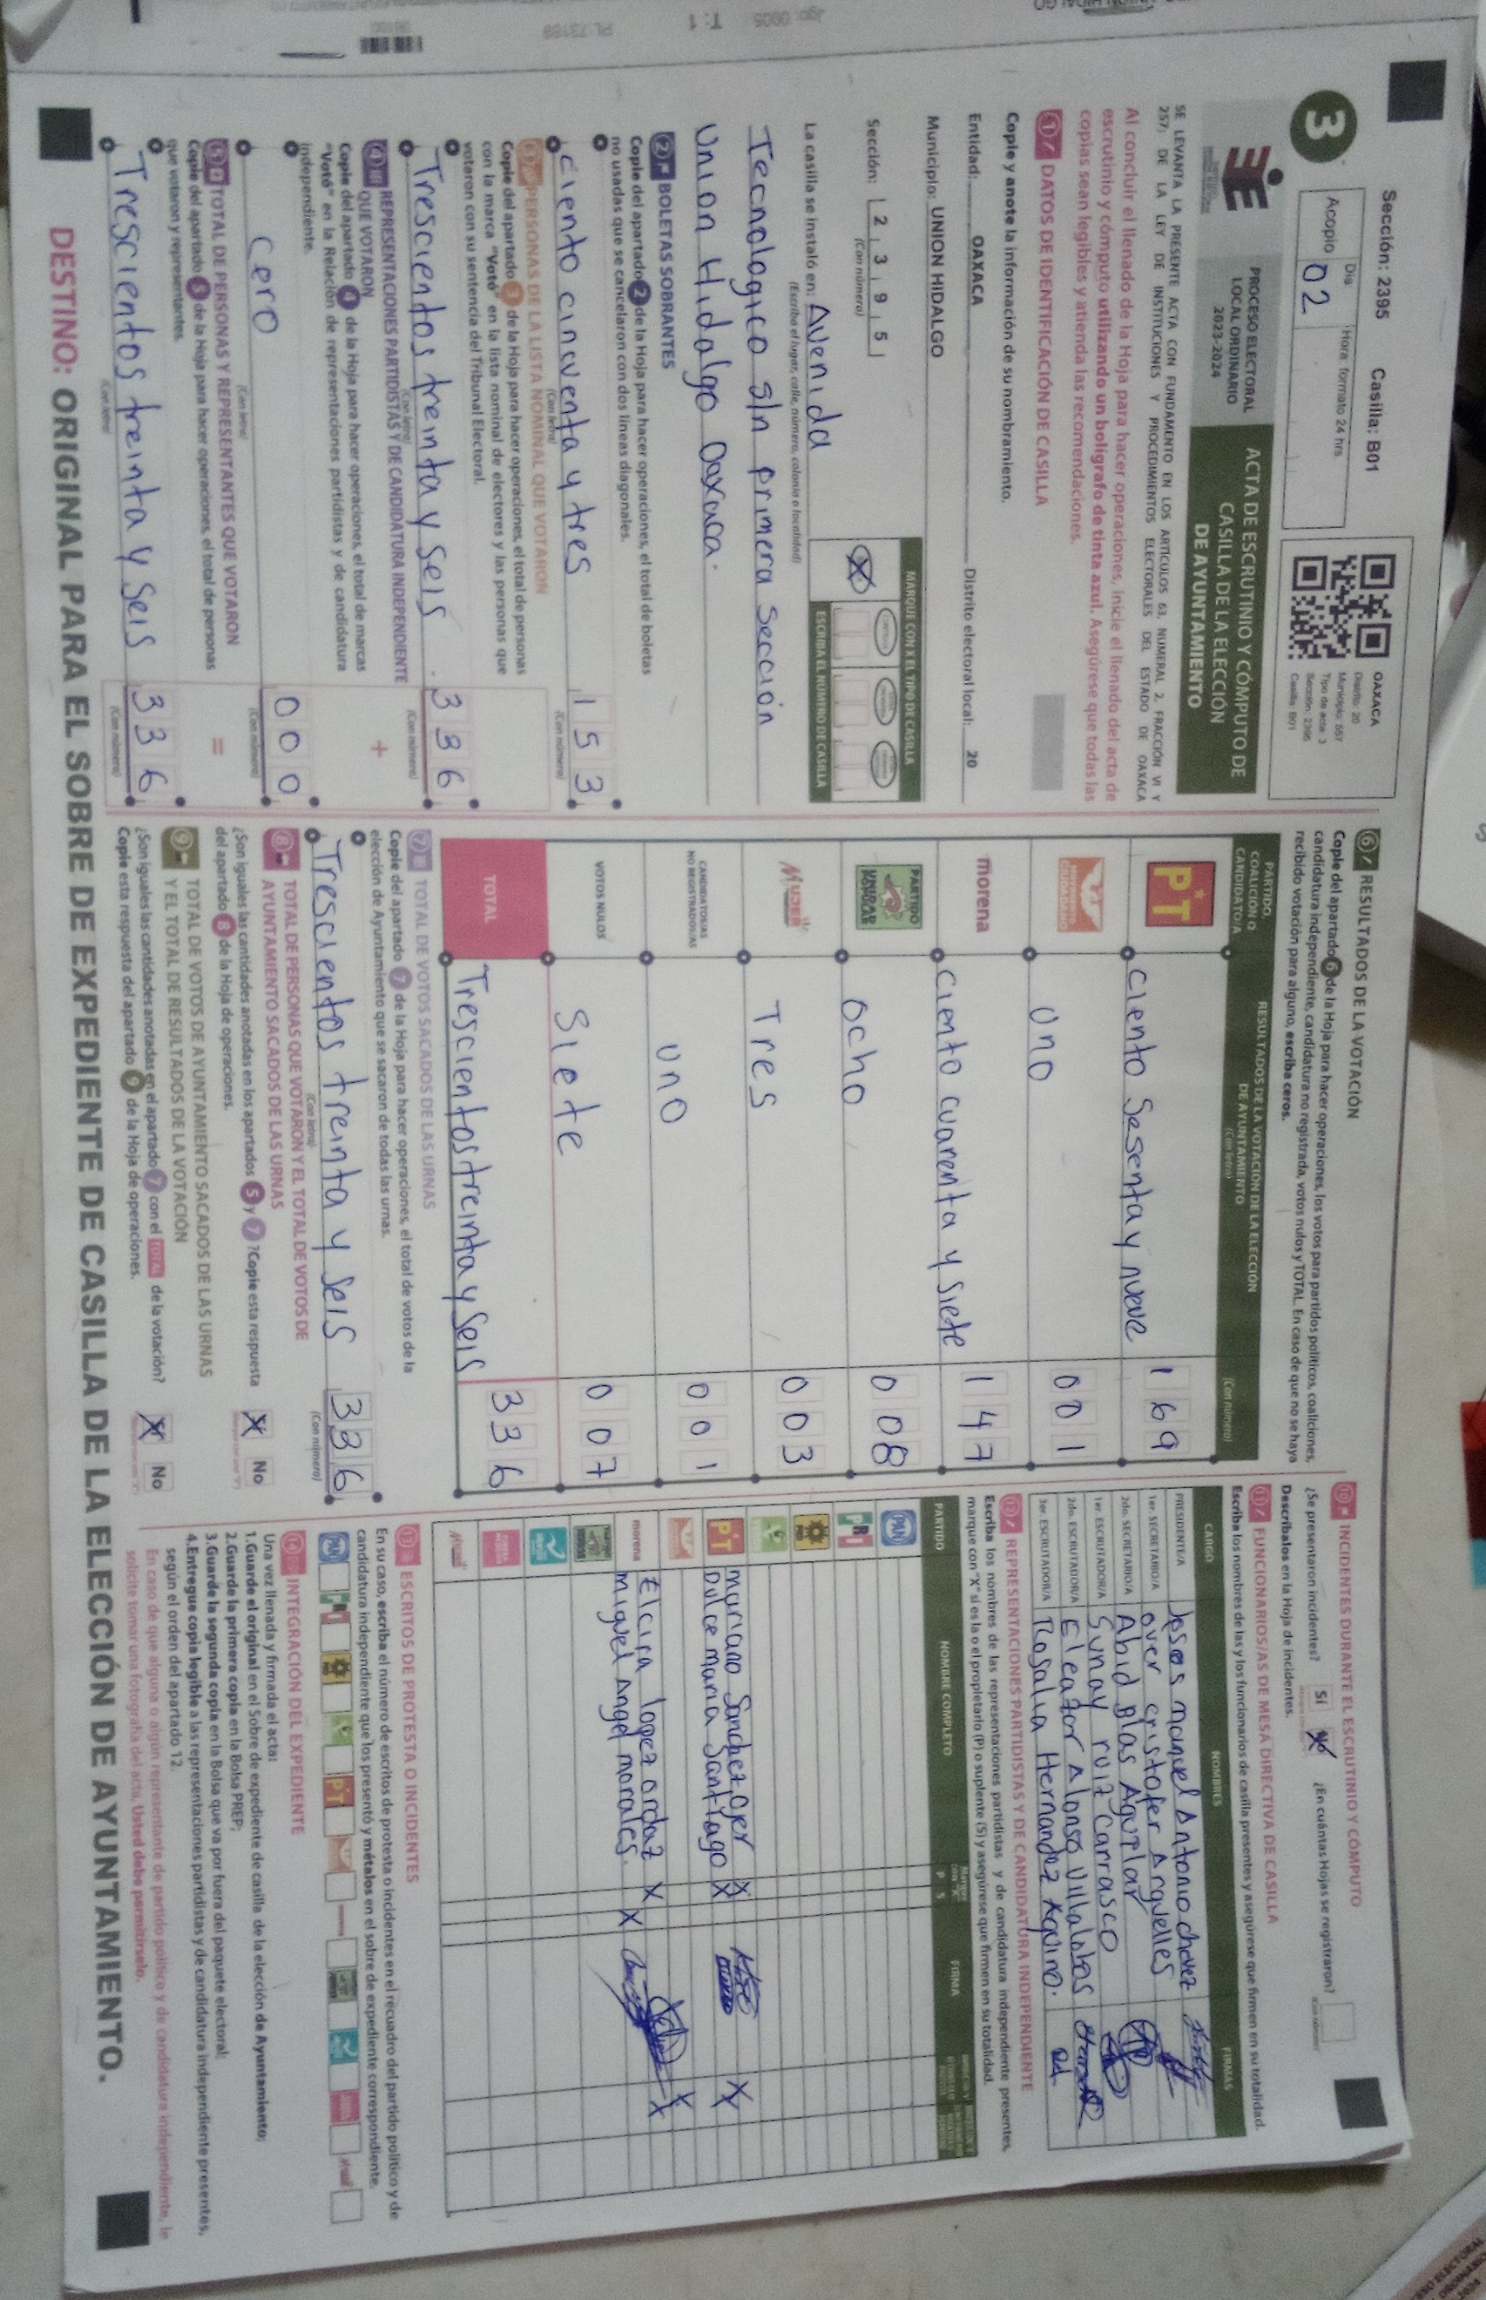 Sección: 2395 Casilla: B01
3
Día Hora: formato 24 hrs
Acopio 02
OAXACA
Distrito: 20
Municipio: 557
Tipo de acta: 3
Sección: 2395
Casilla: B01
PROCESO ELECTORAL
LOCAL ORDINARIO
2023-2024
ACTA DE ESCRUTINIO Y CÓMPUTO DE
CASILLA DE LA ELECCIÓN
DE AYUNTAMIENTO
SE LEVANTA LA PRESENTE ACTA CON FUNDAMENTO EN LOS ARTÍCULOS 63, NUMERAL 2, FRACCIÓN VI Y
257, DE LA LEY DE INSTITUCIONES Y PROCEDIMIENTOS ELECTORALES DEL ESTADO DE OAXACA
Al concluir el llenado de la Hoja para hacer operaciones, inicie el llenado del acta de
escrutinio y cómputo utilizando un bolígrafo de tinta azul. Asegúrese que todas las
copias sean legibles y atienda las recomendaciones.
1 DATOS DE IDENTIFICACIÓN DE CASILLA
Copie y anote la información de su nombramiento.
Entidad: OAXACA Distrito electoral local: 20
Municipio: UNION HIDALGO
Sección: 2 3 9 5
(Con número)
MARQUE CON X EL TIPO DE CASILLA
ESCRIBA EL NÚMERO DE CASILLA
La casilla se instaló en: Avenida
(Escriba el lugar, calle, número, colonia o localidad)
Tecnologico s/n primera sección
Union Hidalgo Oaxaca.
2 BOLETAS SOBRANTES
Copie del apartado 2 de la Hoja para hacer operaciones, el total de boletas
no usadas que se cancelaron con dos líneas diagonales.
ciento cincuenta y tres 1 5 3
(Con letra) (Con número)
PERSONAS DE LA LISTA NOMINAL QUE VOTARON
Copie del apartado 3 de la Hoja para hacer operaciones, el total de personas
con la marca "Votó" en la lista nominal de electores y las personas que
votaron con su sentencia del Tribunal Electoral.
Trescientos treinta y seis 3 3 6
(Con letra) (Con número)
4 REPRESENTACIONES PARTIDISTAS Y DE CANDIDATURA INDEPENDIENTE
QUE VOTARON
Copie del apartado 4 de la Hoja para hacer operaciones, el total de marcas
"Votó" en la Relación de representaciones partidistas y de candidatura
independiente.
+
cero 0 0 0
(Con letra) (Con número)
5 TOTAL DE PERSONAS Y REPRESENTANTES QUE VOTARON
Copie del apartado 5 de la Hoja para hacer operaciones, el total de personas
que votaron y representantes.
=
Trescientos treinta y seis 3 3 6
(Con letra) (Con número)
6 RESULTADOS DE LA VOTACIÓN
Copie del apartado 6 de la Hoja para hacer operaciones, los votos para partidos políticos, coaliciones,
candidatura independiente, candidatura no registrada, votos nulos y TOTAL. En caso de que no se haya
recibido votación para alguno, escriba ceros.
PARTIDO, COALICIÓN O CANDIDATO/A
RESULTADOS DE LA VOTACIÓN DE LA ELECCIÓN
DE AYUNTAMIENTO
(Con letra) (Con número)
PT ciento sesenta y nueve 1 6 9
MOVIMIENTO CIUDADANO uno 0 0 1
morena ciento cuarenta y siete 1 4 7
PARTIDO UNIDAD POPULAR ocho 0 0 8
MUJER Tres 0 0 3
CANDIDATOS/AS NO REGISTRADOS/AS uno 0 0 1
VOTOS NULOS Siete 0 0 7
TOTAL Trescientos treinta y seis 3 3 6
7 TOTAL DE VOTOS SACADOS DE LAS URNAS
Copie del apartado 7 de la Hoja para hacer operaciones, el total de votos de la
elección de Ayuntamiento que se sacaron de todas las urnas.
Trescientos treinta y seis 3 3 6
(Con letra) (Con número)
8 TOTAL DE PERSONAS QUE VOTARON Y EL TOTAL DE VOTOS DE
AYUNTAMIENTO SACADOS DE LAS URNAS
¿Son iguales las cantidades anotadas en los apartados 5 y 7? Copie esta respuesta
del apartado 8 de la Hoja de operaciones.
X No
9 TOTAL DE VOTOS DE AYUNTAMIENTO SACADOS DE LAS URNAS
Y EL TOTAL DE RESULTADOS DE LA VOTACIÓN
¿Son iguales las cantidades anotadas en el apartado 7 con el TOTAL de la votación?
Copie esta respuesta del apartado 9 de la Hoja de operaciones.
X No
10 INCIDENTES DURANTE EL ESCRUTINIO Y CÓMPUTO
¿Se presentaron incidentes? Sí X ¿En cuántas Hojas se registraron?
Descríbalos en la Hoja de incidentes.
11 FUNCIONARIOS/AS DE MESA DIRECTIVA DE CASILLA
Escriba los nombres de las y los funcionarios de casilla presentes y asegúrese que firmen en su totalidad.
CARGO NOMBRES FIRMAS
PRESIDENTE/A Joses manuel Antonio chevez
1er. SECRETARIO/A over cristofer Arguelles
2do. SECRETARIO/A Abid Blas Aguilar
1er. ESCRUTADOR/A Sunay ruiz Carrasco
2do. ESCRUTADOR/A Eleazor Alonso Villalobas
3er. ESCRUTADOR/A Rosalia Hernandez Aquino.
12 REPRESENTACIONES PARTIDISTAS Y DE CANDIDATURA INDEPENDIENTE
Escriba los nombres de las representaciones partidistas y de candidatura independiente presentes,
marque con "X" si es la o el propietario (P) o suplente (S) y asegúrese que firmen en su totalidad.
PARTIDO NOMBRE COMPLETO P S FIRMA
PAN
PRI
PRD
PT mariano Sanchez oyer X X
Dulce maria Santiago X
morena Elcira lopez ordaz X X
miguel Angel morales. X X
13 ESCRITOS DE PROTESTA O INCIDENTES
En su caso, escriba el número de escritos de protesta o incidentes en el recuadro del partido político y de
candidatura independiente que los presentó y métalos en el sobre de expediente correspondiente.
PAN PRI PRD PT
14 INTEGRACIÓN DEL EXPEDIENTE
Una vez llenada y firmada el acta:
1.Guarde el original en el Sobre de expediente de casilla de la elección de Ayuntamiento;
2.Guarde la primera copia en la Bolsa PREP;
3.Guarde la segunda copia en la Bolsa que va por fuera del paquete electoral;
4.Entregue copia legible a las representaciones partidistas y de candidatura independiente presentes,
según el orden del apartado 12.
En caso de que alguna o algún representante de partido político y de candidatura independiente, le
solicite tomar una fotografía del acta, Usted debe permitírselo.
DESTINO: ORIGINAL PARA EL SOBRE DE EXPEDIENTE DE CASILLA DE LA ELECCIÓN DE AYUNTAMIENTO.